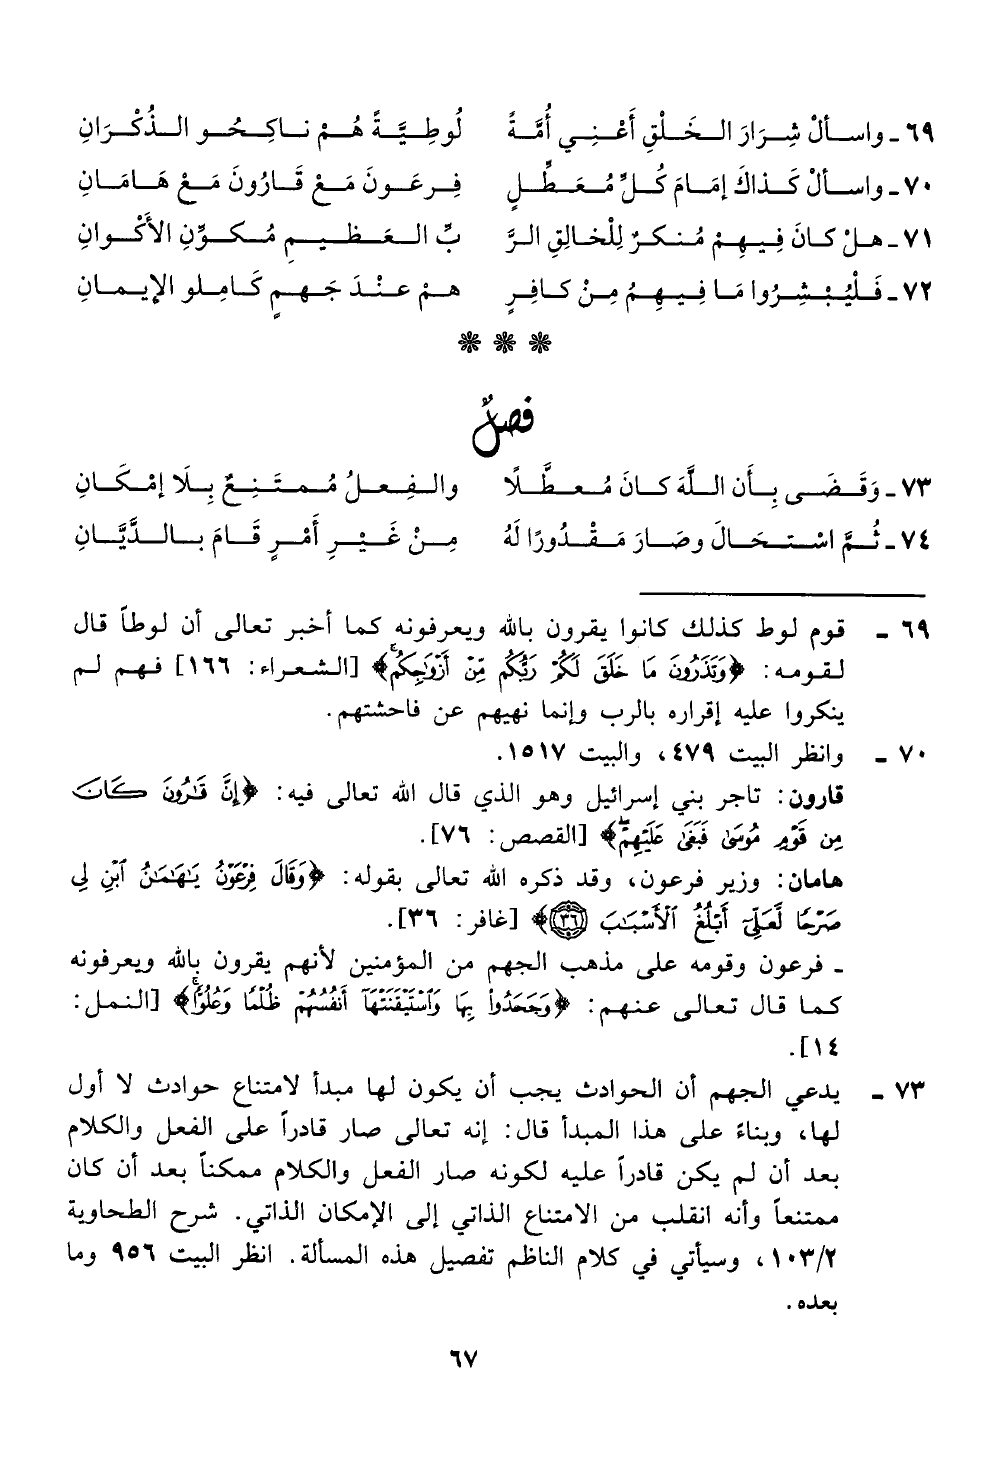 ٦٩ ـ واسألْ شِرَارَ الخَلْقِ أَعْنِي أُمَّةً لُوطِيَّةً هُمْ ناكِحُو الذُّكْرَانِ
٧٠ ـ واسألْ كَذاكَ إمَامَ كُلِّ مُعَطِّلٍ فِرعَونَ مَعْ قَارُونَ مَعْ هَامَانِ
٧١ ـ هلْ كانَ فِيهِمْ مُنكرٌ لِلْخالِقِ الرَّ بِّ العَظيمِ مُكوِّنِ الأَكْوانِ
٧٢ ـ فَلْيُبْشِرُوا مَا فِيهِمُ مِنْ كافِرٍ همْ عنْدَ جَهمٍ كَامِلو الإيمانِ
❋ ❋ ❋
فصلٌ
٧٣ ـ وَقَضَى بِأَن اللَّهَ كانَ مُعطَّلًا والفِعلُ مُمتَنِعٌ بِلَا إمْكَانِ
٧٤ ـ ثُمَّ اسْتحَالَ وصَارَ مَقْدُورًا لَهُ مِنْ غَيْرِ أَمْرٍ قَامَ بالدَّيَّانِ
٦٩ ـ قوم لوط كذلك كانوا يقرون بالله ويعرفونه كما أخبر تعالى أن لوطاً قال
لقومه: ﴿وَتَذَرُونَ مَا خَلَقَ لَكُمْ رَبُّكُم مِّنْ أَزْوَٰجِكُمۚ﴾ [الشعراء: ١٦٦] فهم لم
ينكروا عليه إقراره بالرب وإنما نهيهم عن فاحشتهم.
٧٠ ـ وانظر البيت ٤٧٩، والبيت ١٥١٧.
قارون: تاجر بني إسرائيل وهو الذي قال الله تعالى فيه: ﴿إِنَّ قَٰرُونَ كَانَ
مِن قَوْمِ مُوسَىٰ فَبَغَىٰ عَلَيْهِمْۖ﴾ [القصص: ٧٦].
هامان: وزير فرعون، وقد ذكره الله تعالى بقوله: ﴿وَقَالَ فِرْعَوْنُ يَٰهَٰمَٰنُ ٱبْنِ لِي
صَرْحًا لَّعَلِّيٓ أَبْلُغُ ٱلْأَسْبَٰبَ ۝٣٦﴾ [غافر: ٣٦].
ـ فرعون وقومه على مذهب الجهم من المؤمنين لأنهم يقرون بالله ويعرفونه
كما قال تعالى عنهم: ﴿وَجَحَدُواْ بِهَا وَٱسْتَيْقَنَتْهَآ أَنفُسُهُمْ ظُلْمًا وَعُلُوًّاۚ﴾ [النمل:
١٤].
٧٣ ـ يدعي الجهم أن الحوادث يجب أن يكون لها مبدأ لامتناع حوادث لا أول
لها، وبناءً على هذا المبدأ قال: إنه تعالى صار قادراً على الفعل والكلام
بعد أن لم يكن قادراً عليه لكونه صار الفعل والكلام ممكناً بعد أن كان
ممتنعاً وأنه انقلب من الامتناع الذاتي إلى الإمكان الذاتي. شرح الطحاوية
١٠٣/٢، وسيأتي في كلام الناظم تفصيل هذه المسألة. انظر البيت ٩٥٦ وما
بعده.
٦٧